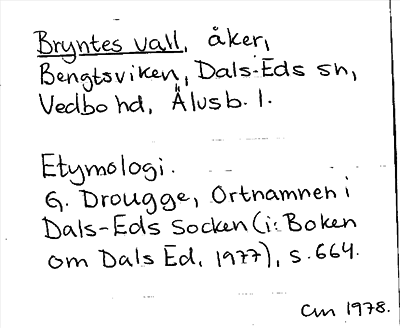 Bryntes vall, åker,
Bengtsviken, Dals-Eds sn,
Vedbo hd, Älvsb. l.
Etymologi.
G. Drougge, Ortnamnen i
Dals-Eds Socken (i: Boken
om Dals Ed, 1977), s. 664.
Cm 1978.